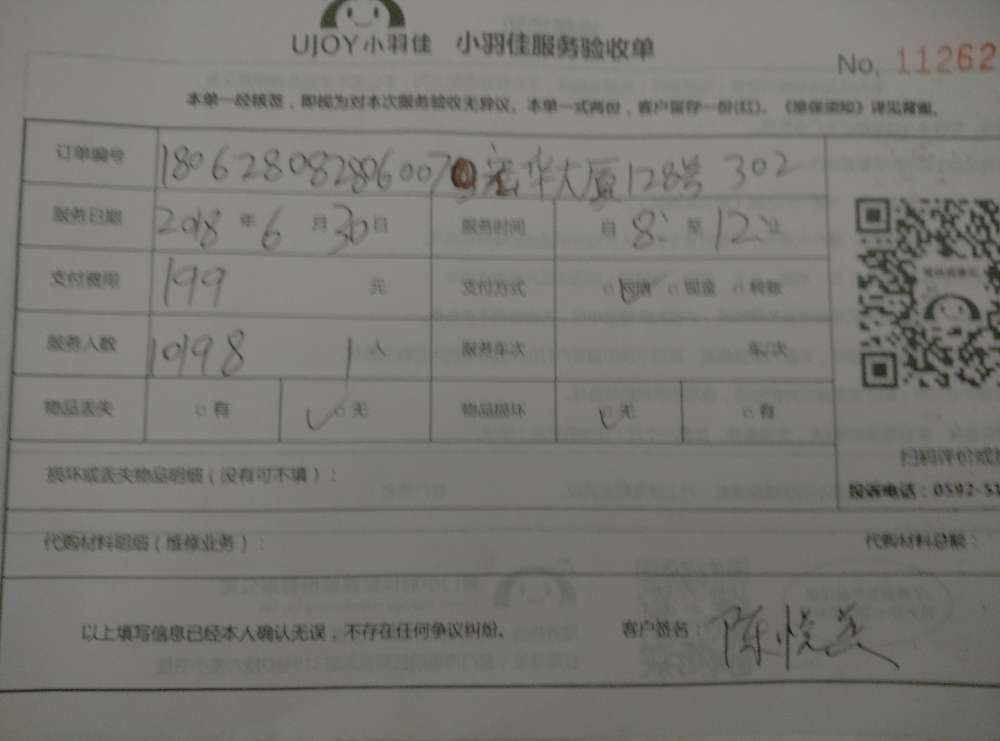 UJOY小羽佳 小羽佳服务验收单
No. 11262
本单一经核签，即视为对本次服务验收无异议。本单一式两份，客户留存一份(红)。《维保须知》详见背面。
订单编号 180628082806007 宏华大厦128号 302
服务日期 2018 年 6 月 30 日 服务时间 自 8: 至 12: 止
支付费用 199 元 支付方式 网络 现金 转账
服务人数 10198 1 人 服务车次 车/次
物品丢失 有 无 物品损坏 无 有
扫码评价或
损坏或丢失物品明细（没有可不填）：
投诉电话：0592-51
代购材料明细（维修业务）： 代购材料总额：
以上填写信息已经本人确认无误，不存在任何争议纠纷。 客户签名：陈悦